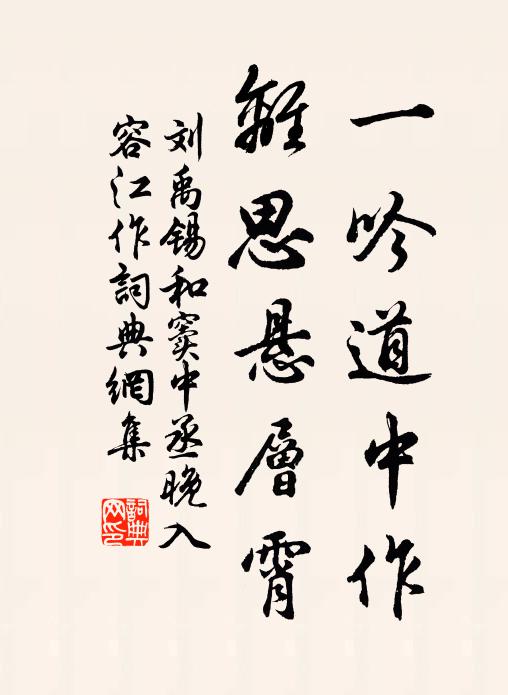 一吟道中作
離思悬層霄
刘禹锡和窦中丞晚入
容江作詞典網集
詞典
网印